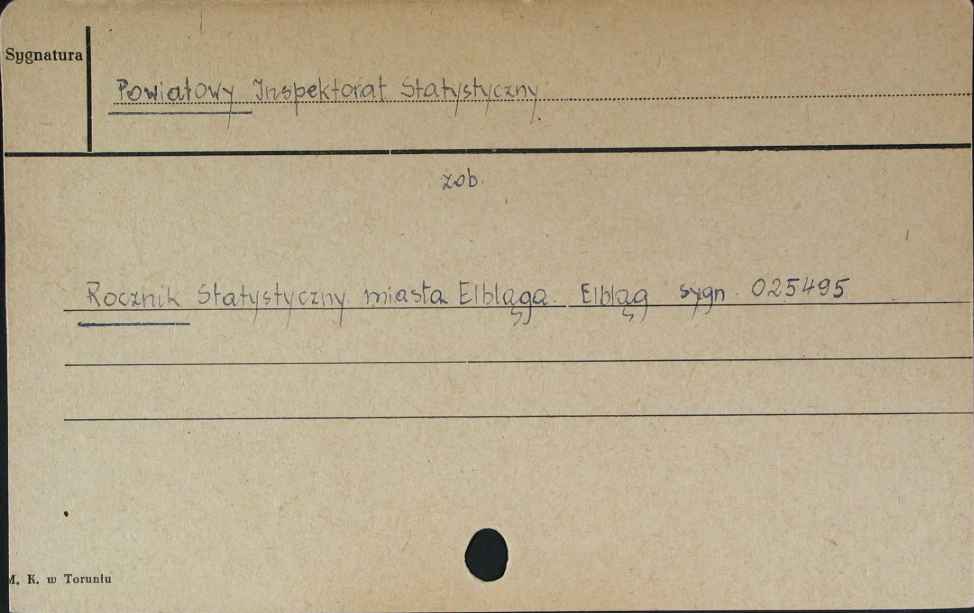 Sygnatura
Powiatowy Inspektorat Statystyczny
zob.
Rocznik Statystyczny miasta Elbląga. Elbląg sygn. 025495
M. K. w Toruniu